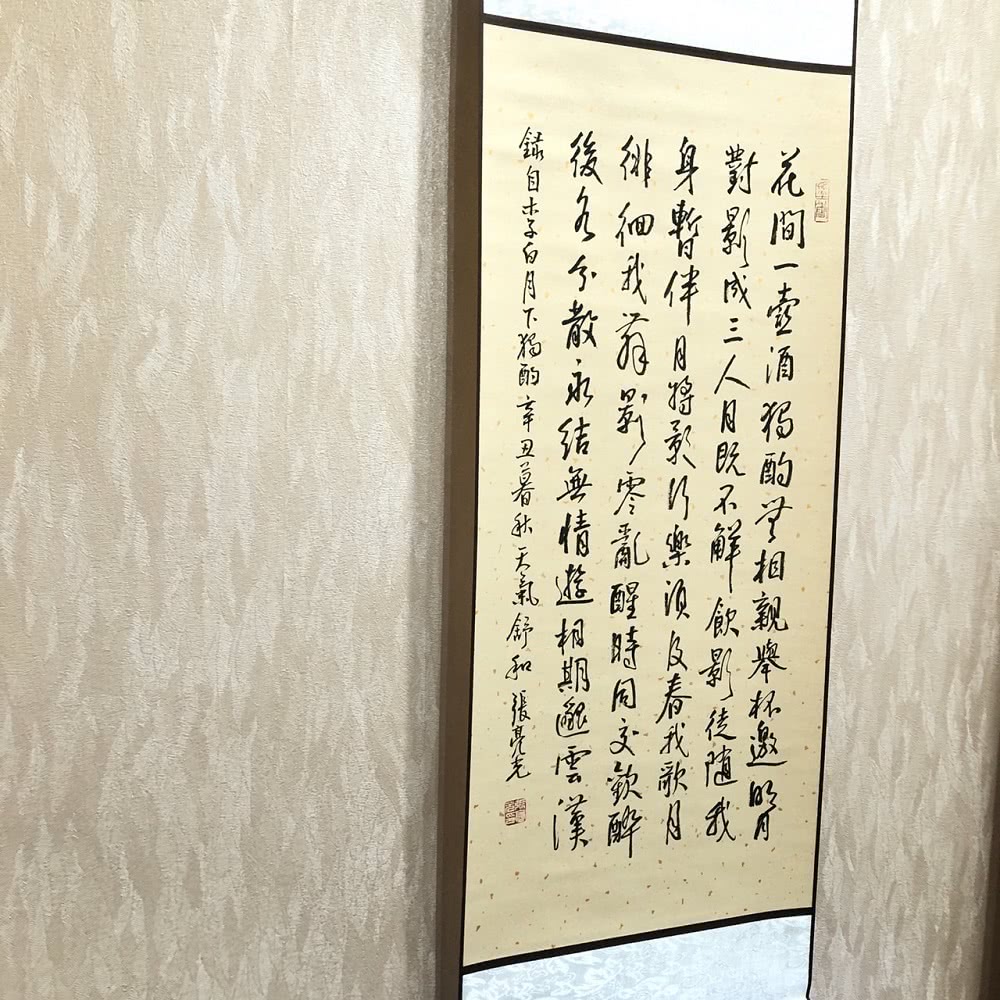 花間一壺酒獨酌無相親舉杯邀明月
對影成三人月既不解飲影徒随我
身暫伴月將影行樂須及春我歌月
徘徊我舞影零亂醒時同交歡醉
後各分散永结無情遊相期邈雲漢
錄自李白月下獨酌辛丑暮秋天氣舒和張亮光